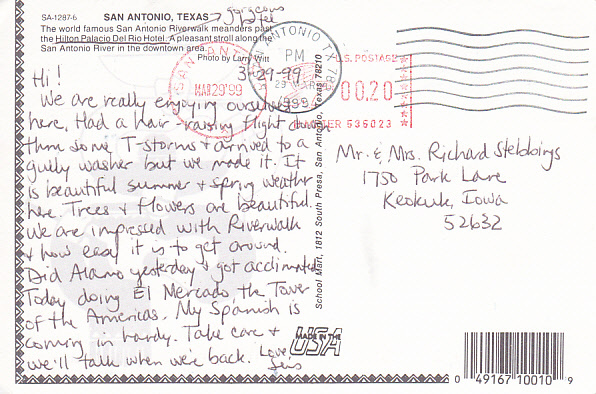 SA-1287-6 SAN ANTONIO, TEXAS
gorgeous
Hotel
The world famous San Antonio Riverwalk meanders past
the Hilton Palacio Del Rio Hotel. A pleasant stroll along the
San Antonio River in the downtown area.
Photo by Larry Witt
3-29-99
Hi!
We are really enjoying ourselves
here. Had a hair-raising flight down
thru some T-storms & arrived to a
gully washer but we made it. It
is beautiful summer & spring weather
here. Trees & flowers are beautiful.
We are impressed with Riverwalk
& how easy it is to get around.
Did Alamo yesterday & got acclimated
Today doing El Mercado, the Tower
of the Americas. My Spanish is
coming in handy. Take care &
we'll talk when we're back. Love,
School Mart, 1812 South Presa, San Antonio, Texas 78210
MADE IN THE
USA
SAN ANTONIO
MAR 29 '99
SAN ANTONIO TX 782
PM
29 MAR
1999
U.S. POSTAGE
00.20
METER 536023
Mr. & Mrs. Richard Stebbings
1750 Park Lane
Keokuk, Iowa
52632
0 49167 10010 9